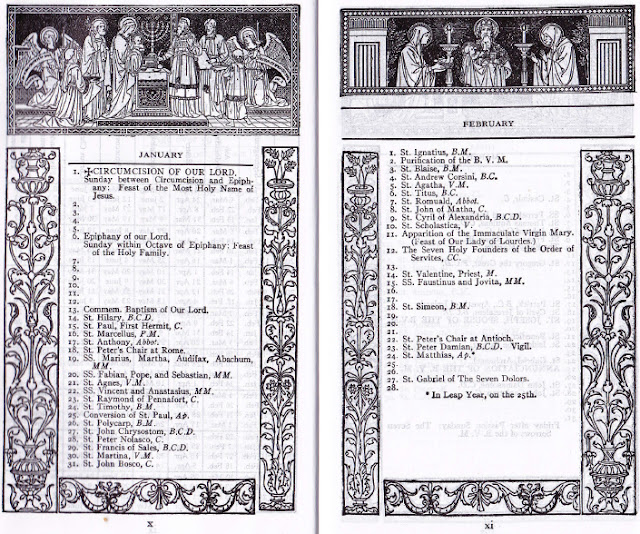 JANUARY
1. ✠CIRCUMCISION OF OUR LORD.
Sunday between Circumcision and Epiph-
any: Feast of the Most Holy Name of
Jesus.
2.
3.
4.
5.
6. Epiphany of our Lord.
Sunday within Octave of Epiphany: Feast
of the Holy Family.
7.
8.
9.
10.
11.
12.
13. Commem. Baptism of Our Lord.
14. St. Hilary, B.C.D.
15. St. Paul, First Hermit, C.
16. St. Marcellus, P.M.
17. St. Anthony, Abbot.
18. St. Peter's Chair at Rome.
19. SS. Marius, Martha, Audifax, Abachum,
MM.
20. SS. Fabian, Pope, and Sebastian, MM.
21. St. Agnes, V.M.
22. SS. Vincent and Anastasius, MM.
23. St. Raymond of Pennafort, C.
24. St. Timothy, B.M.
25. Conversion of St. Paul, Ap.
26. St. Polycarp, B.M.
27. St. John Chrysostom, B.C.D.
28. St. Peter Nolasco, C.
29. St. Francis of Sales, B.C.D.
30. St. Martina, V.M.
31. St. John Bosco, C.
x
FEBRUARY
1. St. Ignatius, B.M.
2. Purification of the B. V. M.
3. St. Blaise, B.M.
4. St. Andrew Corsini, B.C.
5. St. Agatha, V.M.
6. St. Titus, B.C.
7. St. Romuald, Abbot.
8. St. John of Matha, C.
9. St. Cyril of Alexandria, B.C.D.
10. St. Scholastica, V.
11. Apparition of the Immaculate Virgin Mary.
(Feast of Our Lady of Lourdes.)
12. The Seven Holy Founders of the Order of
Servites, CC.
13.
14. St. Valentine, Priest, M.
15. SS. Faustinus and Jovita, MM.
16.
17.
18. St. Simeon, B.M.
19.
20.
21.
22. St. Peter's Chair at Antioch.
23. St. Peter Damian, B.C.D. Vigil.
24. St. Matthias, Ap.*
25.
26.
27. St. Gabriel of The Seven Dolors.
28.
* In Leap Year, on the 25th.
xi